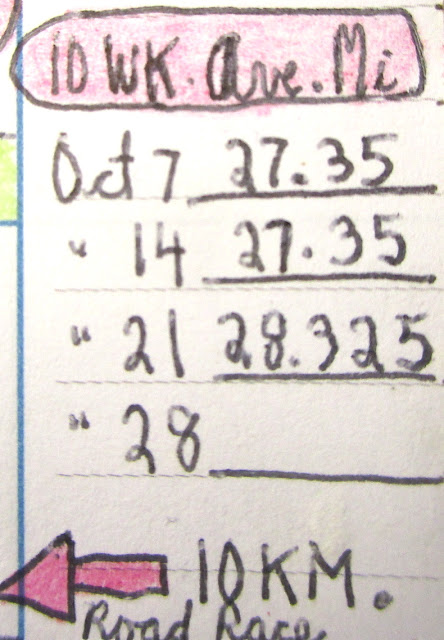 10 WK. Ave. Mi
Oct 7 27.35
" 14 27.35
" 21 28.325
" 28
10KM.
Road Race